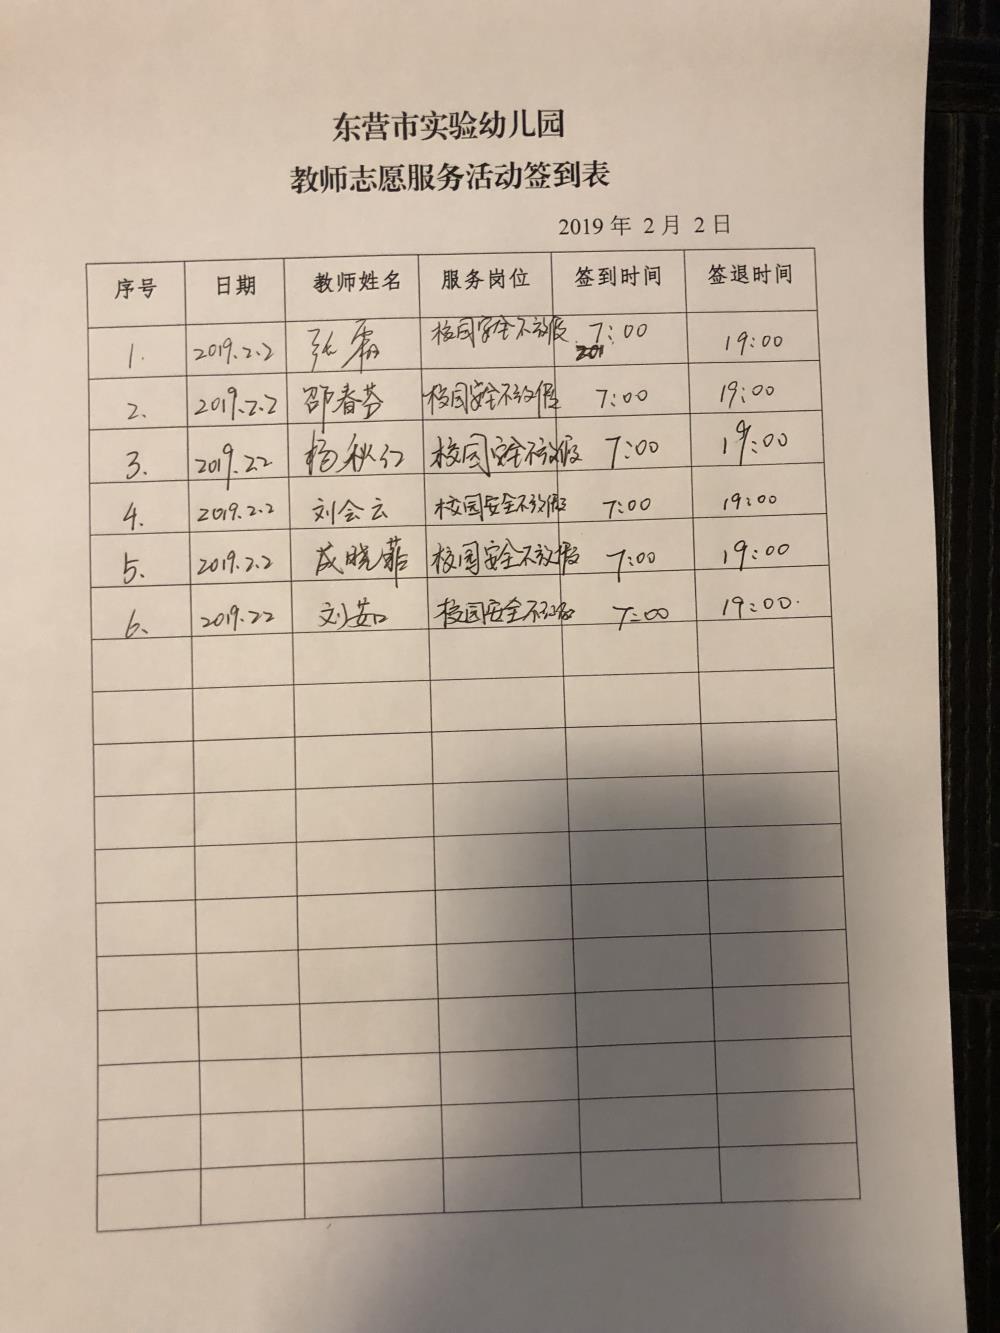 东营市实验幼儿园
教师志愿服务活动签到表
2019 年 2 月 2 日
序号 日期 教师姓名 服务岗位 签到时间 签退时间
1. 2019.2.2 张霜 校园安全不放假 7:00 19:00
2. 2019.2.2 邵春芬 校园安全不放假 7:00 19:00
3. 2019.2.2 杨秋红 校园安全不放假 7:00 19:00
4. 2019.2.2 刘会云 校园安全不放假 7:00 19:00
5. 2019.2.2 成晓菲 校园安全不放假 7:00 19:00
6. 2019.2.2 刘茹 校园安全不放假 7:00 19:00